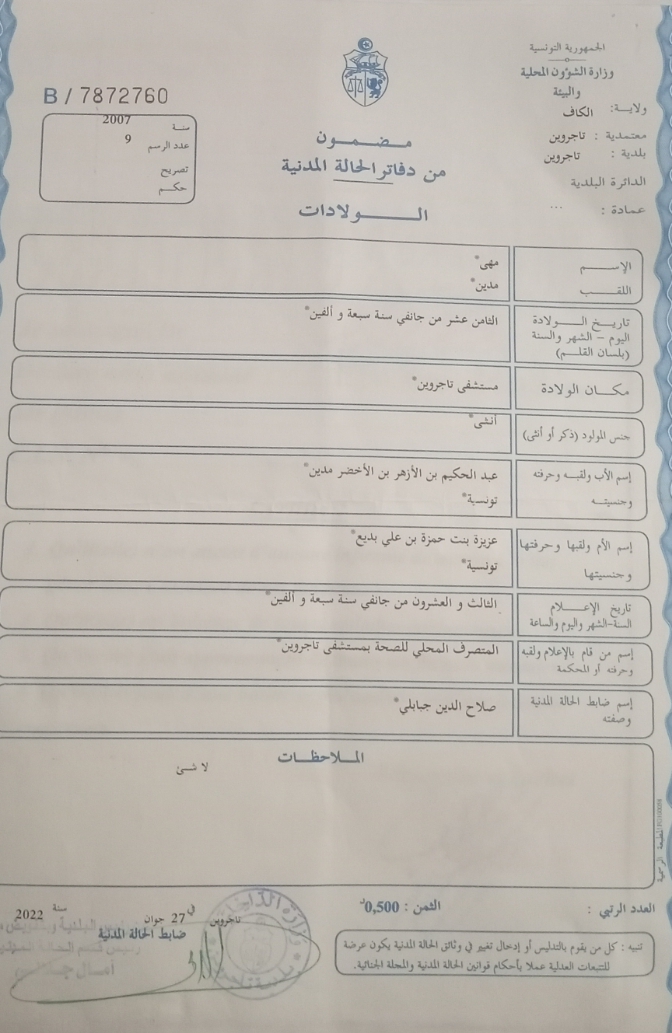 الجمهورية التونسية
وزارة الشؤون المحلية
والبيئة
ولاية: الكاف
معتمدية : تاجروين
بلدية : تاجروين
الدائرة البلدية
عمادة : ...
B / 7872760
سنة 2007
عدد الرسم 9
تصريح
حكم
مضمون
من دفاتر الحالة المدنية
الولادات
الإسم مهى*
اللقب مدين*
تاريخ الولادة الثامن عشر من جانفي سنة سبعة و ألفين*
اليوم – الشهر والسنة
(بلسان القلم)
مكان الولادة مستشفى تاجروين*
جنس المولود (ذكر أو أنثى) أنثى*
إسم الأب ولقبه وحرفته عبد الحكيم بن الأزهر بن الأخضر مدين*
وجنسيته تونسية*
إسم الأم ولقبها وحرفتها عزيزة بنت حمزة بن علي بديع*
وجنسيتها تونسية*
تاريخ الإعلام الثالث و العشرون من جانفي سنة سبعة و ألفين*
السنة-الشهر واليوم والساعة
إسم من قام بالإعلام ولقبه المتصرف المحلي للصحة بمستشفى تاجروين*
وحرفته أو المحكمة
إسم ضابط الحالة المدنية صلاح الدين جبابلي*
وصفته
الملاحظات
لا شئ
العدد الرتبي :
الثمن : 0,500د
تاجروين في 27 جوان سنة 2022
ضابط الحالة المدنية
تنبيه : كل من يقوم بالتدليس أو إدخال تغيير في وثائق الحالة المدنية يكون عرضة
للتتبعات العدلية عملا بأحكام قوانين الحالة المدنية والمجلة الجنائية.